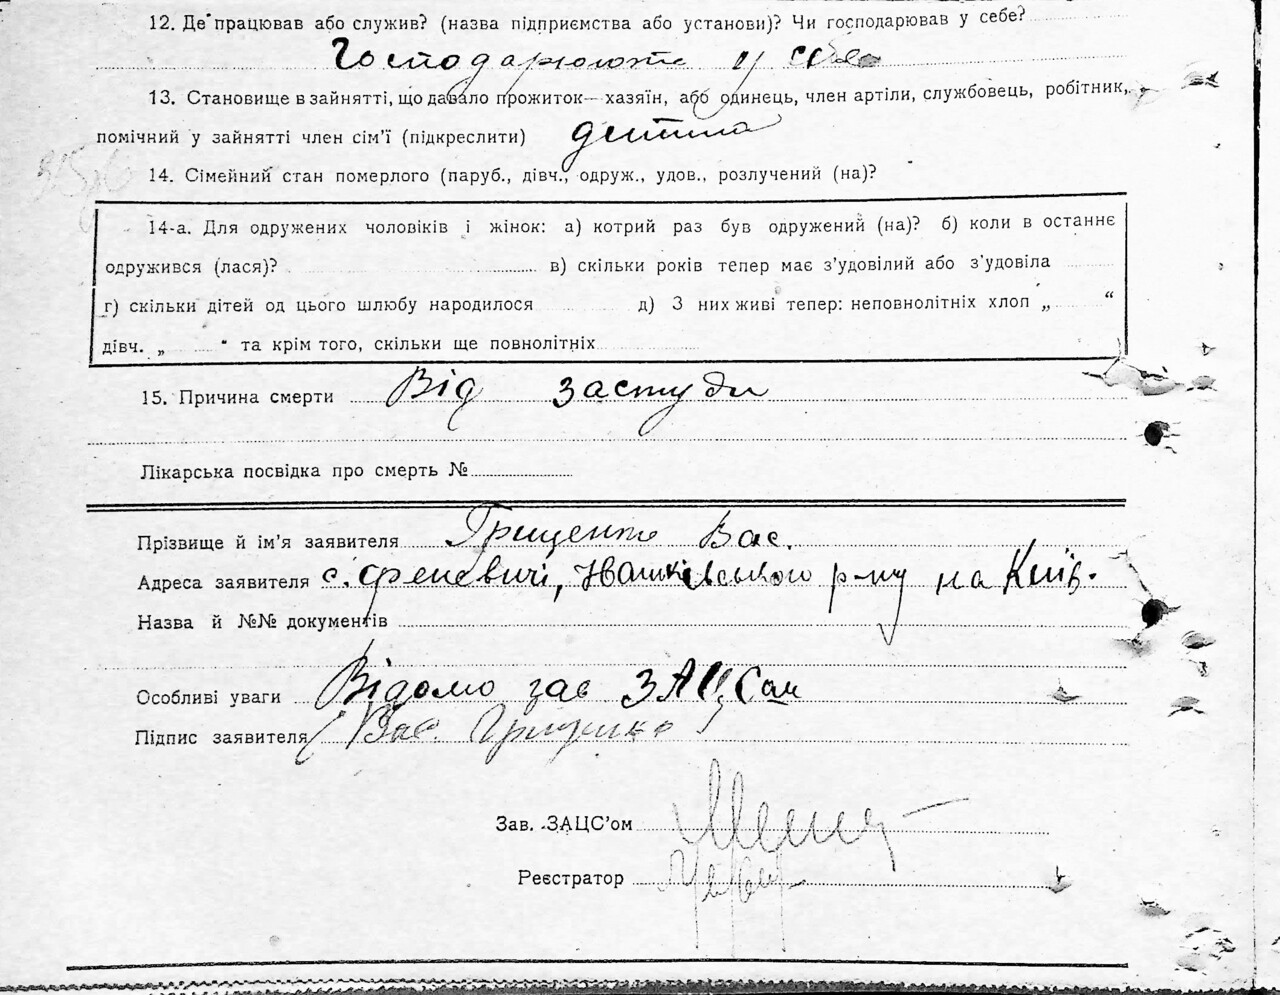 12. Де працював або служив? (назва підприємства або установи)? Чи господарював у себе?
Господарюють у себе
13. Становище в зайнятті, що давало прожиток—хазяїн, або одинець, член артіли, службовець, робітник,
помічний у зайнятті член сім'ї (підкреслити) дитина
14. Сімейний стан померлого (паруб., дівч., одруж., удов., розлучений (на)?
14-а. Для одружених чоловіків і жінок: а) котрий раз був одружений (на)? б) коли в останнє
одружився (лася)? в) скільки років тепер має з'удовілий або з'удовіла
г) скільки дітей од цього шлюбу народилося д) З них живі тепер: неповнолітніх хлоп „ “
дівч. „ “ та крім того, скільки ще повнолітніх
15. Причина смерти Від застуди
Лікарська посвідка про смерть №
Прізвище й ім'я заявителя Грищенко Вас.
Адреса заявителя с. Феневичі, Іванківського р-ну на Київ.
Назва й №№ документів
Особливі уваги Відомо зав ЗАЦСом
Підпис заявителя Вас. Грищенко
Зав. ЗАЦС'ом
Реєстратор